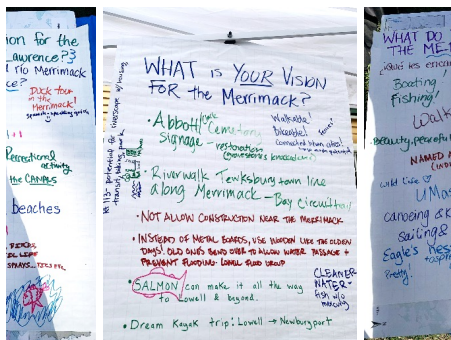 ion for the
awrence?}
rio Merrimack
ce?
Duck tour
in the
Merrimack!
Recreational
activity
the CAMPUS
beaches
WHAT is YOUR VISION
FOR the Merrimack?
• Abbott
Cemetery
signage -
restoration
Walkable!
bikeable!
Connected
Rt 113- potential for
transit, biking, park
• Riverwalk Tewksbury town line
along Merrimack - Bay circuit trail
• NOT ALLOW CONSTRUCTION NEAR THE MERRIMACK
• INSTEAD OF METAL BOARDS, USE WOODEN LIKE THE OLDEN
DAYS! OLD ONES BEND OVER TO ALLOW WATER PASSAGE +
PREVENT FLOODING- LOWELL FLOOD GROUP
• SALMON can make it all the way
to Lowell & beyond.
CLEANER
WATER
fish w/o
mercury
• Dream Kayak trip: Lowell → Newburyport
WHAT DO
THE ME
Boating!
Fishing!
Walk
Beauty, peaceful
NAMED
wild life
UMas
canoeing & K
Sailing &
Eagle's
Pretty!